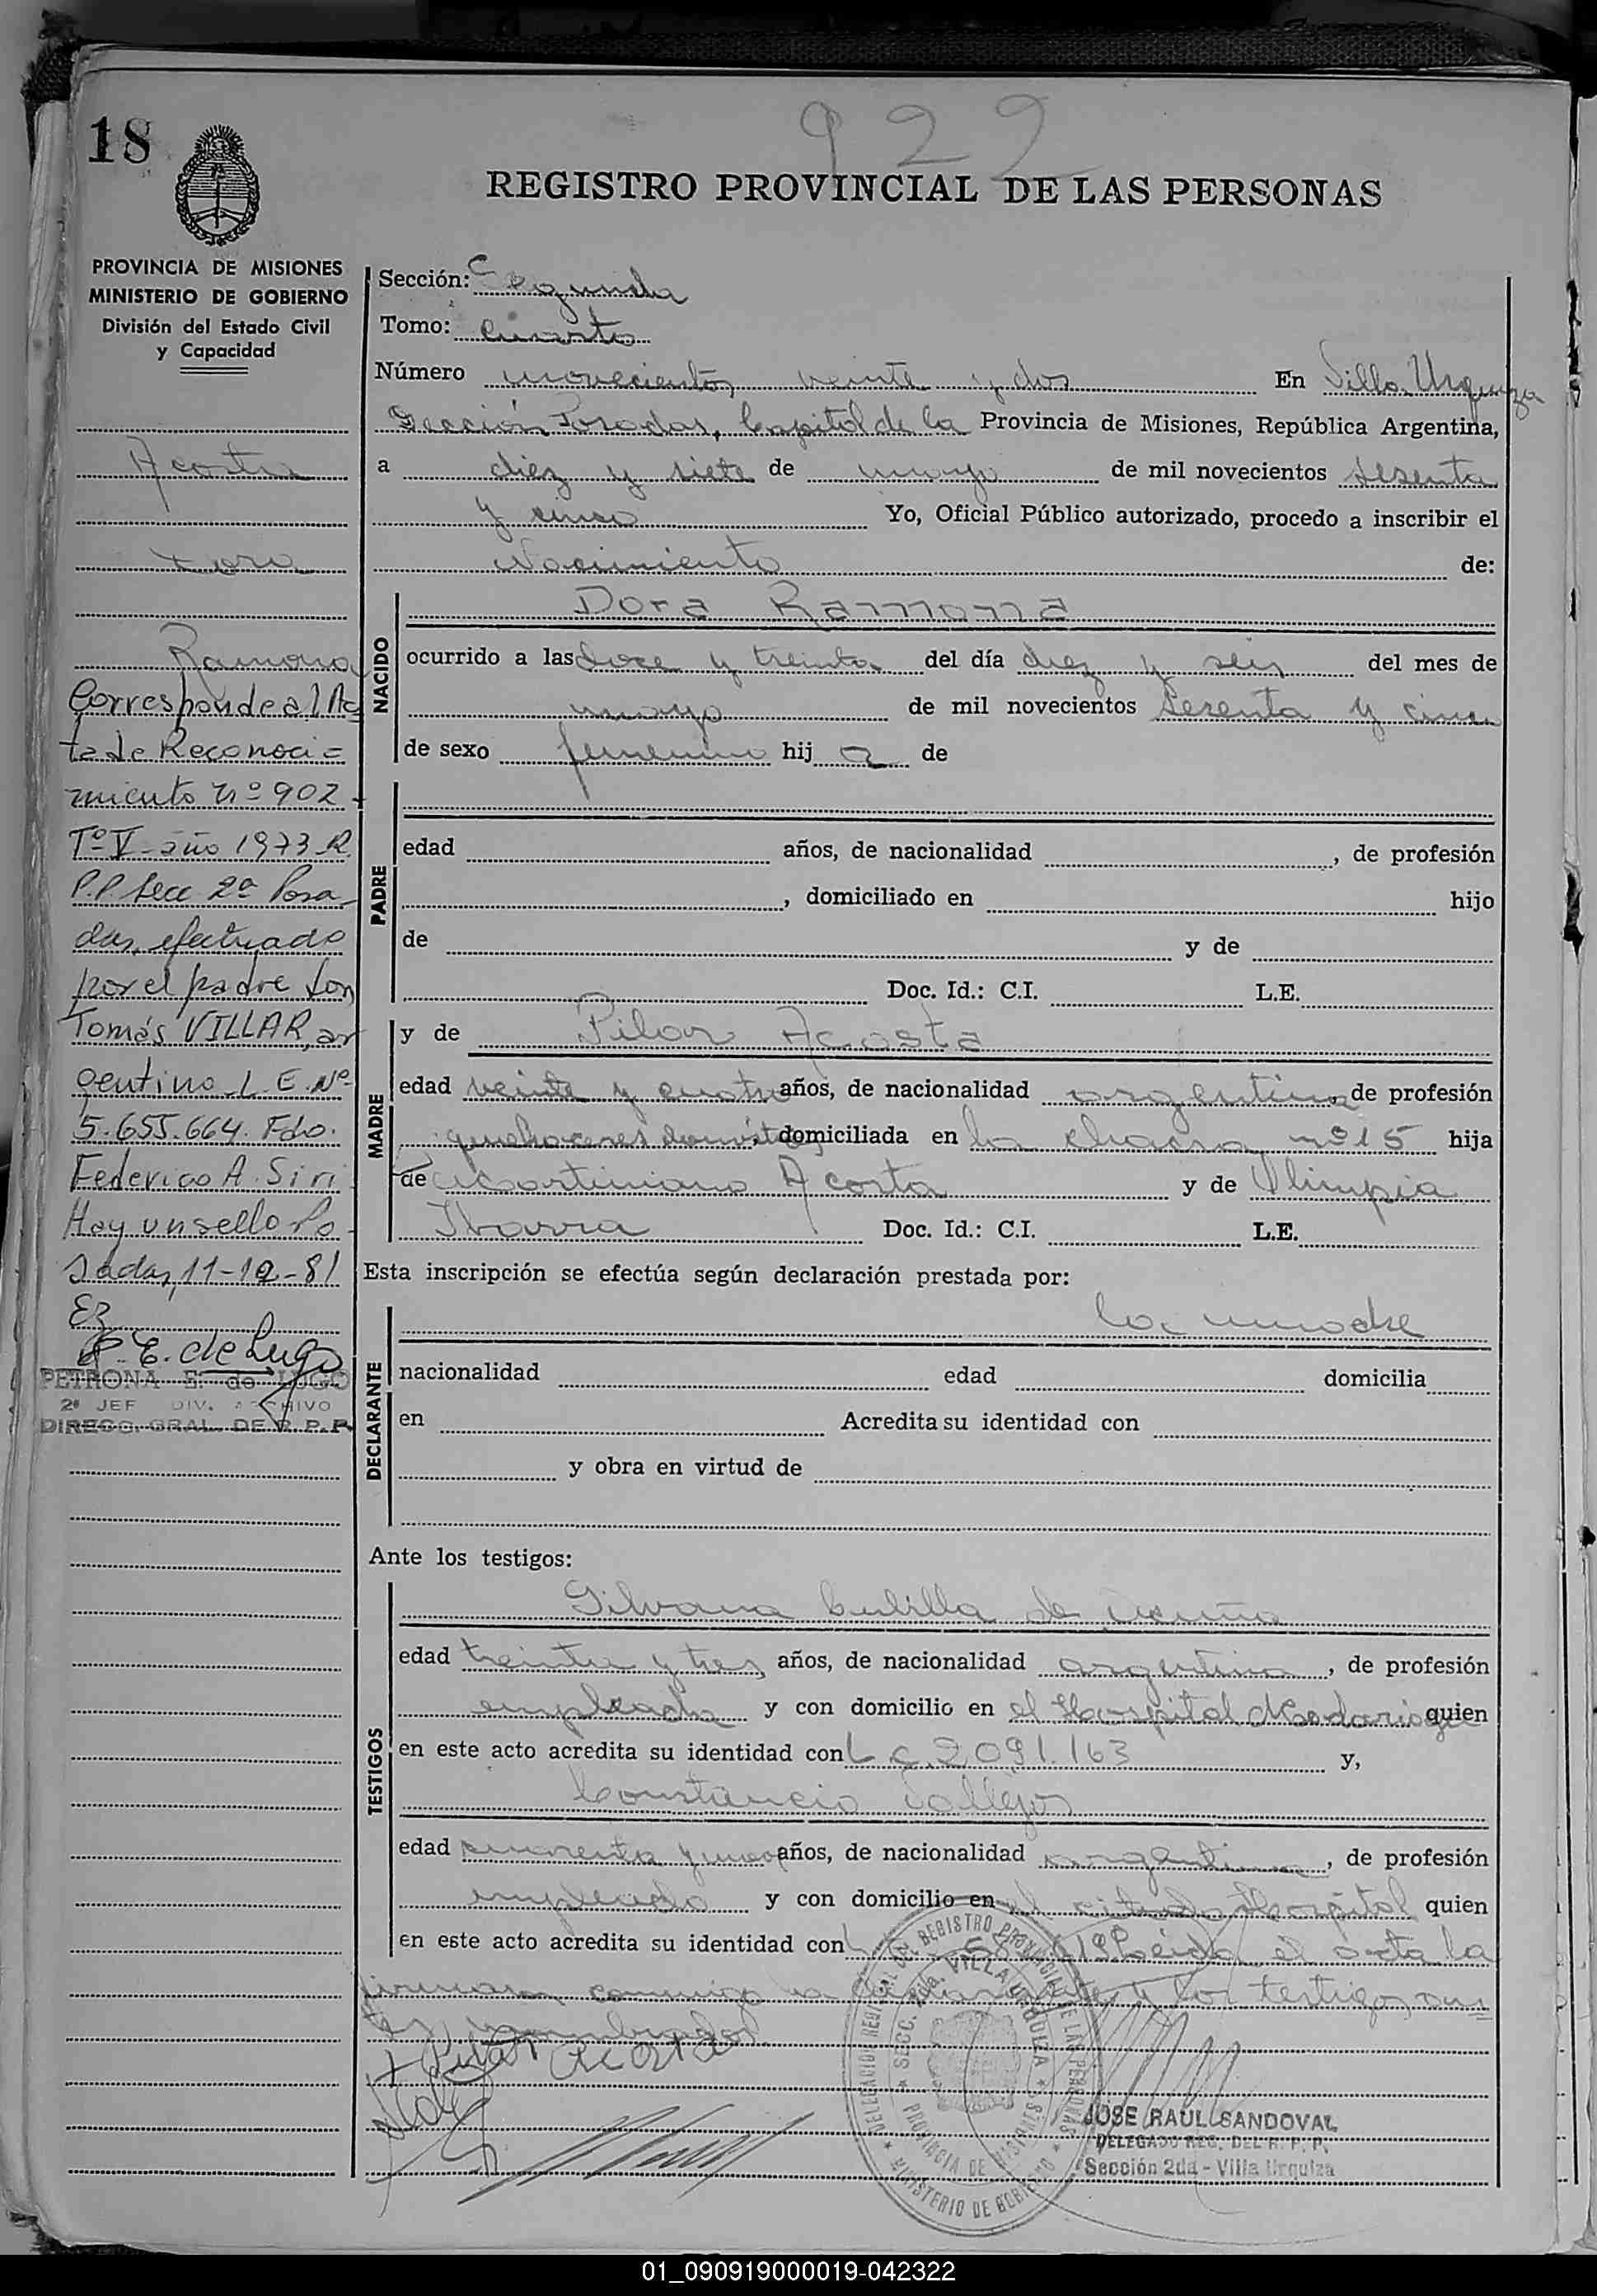 922
18
REGISTRO PROVINCIAL DE LAS PERSONAS
PROVINCIA DE MISIONES
MINISTERIO DE GOBIERNO
División del Estado Civil
y Capacidad
Acosta
Dora
Ramona
Corresponde al Ac
ta de Reconoci=
miento nº 902
Tº V año 1973 R.
P.P. Secc 2ª Posa-
das, efectuado
por el padre don
Tomás VILLAR, ar
gentino L.E. Nº
5.655.664. Fdo.
Federico A. Siri
Hay un sello Po-
sadas, 11-12-81
P. E. de Lugo
PETRONA E. de LUGO
2º JEF DIV. ARCHIVO
DIRECC. GRAL. DE R.P.P.
Sección: Segunda
Tomo: Cuarto
Número novecientos veinte y dos En Villa Urquiza
Sección Posadas, Capital de la Provincia de Misiones, República Argentina,
a diez y siete de mayo de mil novecientos sesenta
y cinco Yo, Oficial Público autorizado, procedo a inscribir el
Nacimiento de:
NACIDO
Dora Ramona
ocurrido a las doce y treinta del día diez y seis del mes de
mayo de mil novecientos sesenta y cinco
de sexo femenino hij a de
PADRE
edad años, de nacionalidad , de profesión
, domiciliado en hijo
de y de
Doc. Id.: C.I. L.E.
MADRE
y de Pilar Acosta
edad veinte y cuatro años, de nacionalidad argentina, de profesión
quehaceres domést domiciliada en la chacra nº 15 hija
de Martiniano Acosta y de Olimpia
Ibarra Doc. Id.: C.I. L.E.
Esta inscripción se efectúa según declaración prestada por:
DECLARANTE
la madre
nacionalidad edad domicilia
en Acredita su identidad con
y obra en virtud de
Ante los testigos:
TESTIGOS
Silvana de Acuña
edad treinta y tres años, de nacionalidad argentina, de profesión
empleada y con domicilio en el Hospital Madariaga quien
en este acto acredita su identidad con L C 2.091.163 y,
Constancio Vallejos
edad cuarenta y años, de nacionalidad argentina, de profesión
empleado y con domicilio en el citado Hospital quien
en este acto acredita su identidad con Leida el acta la
firman conmigo la declarante y los testigos an
tes nombrados.
Pilar Acosta
DELEGACION REGIONAL DEL REGISTRO PROVINCIAL DE LAS PERSONAS
SECC. 2da. VILLA URQUIZA
PROVINCIA DE MISIONES
MINISTERIO DE GOBIERNO
JOSE RAUL SANDOVAL
DELEGADO REG. DEL R. P. P.
Sección 2da - Villa Urquiza
01_090919000019-042322